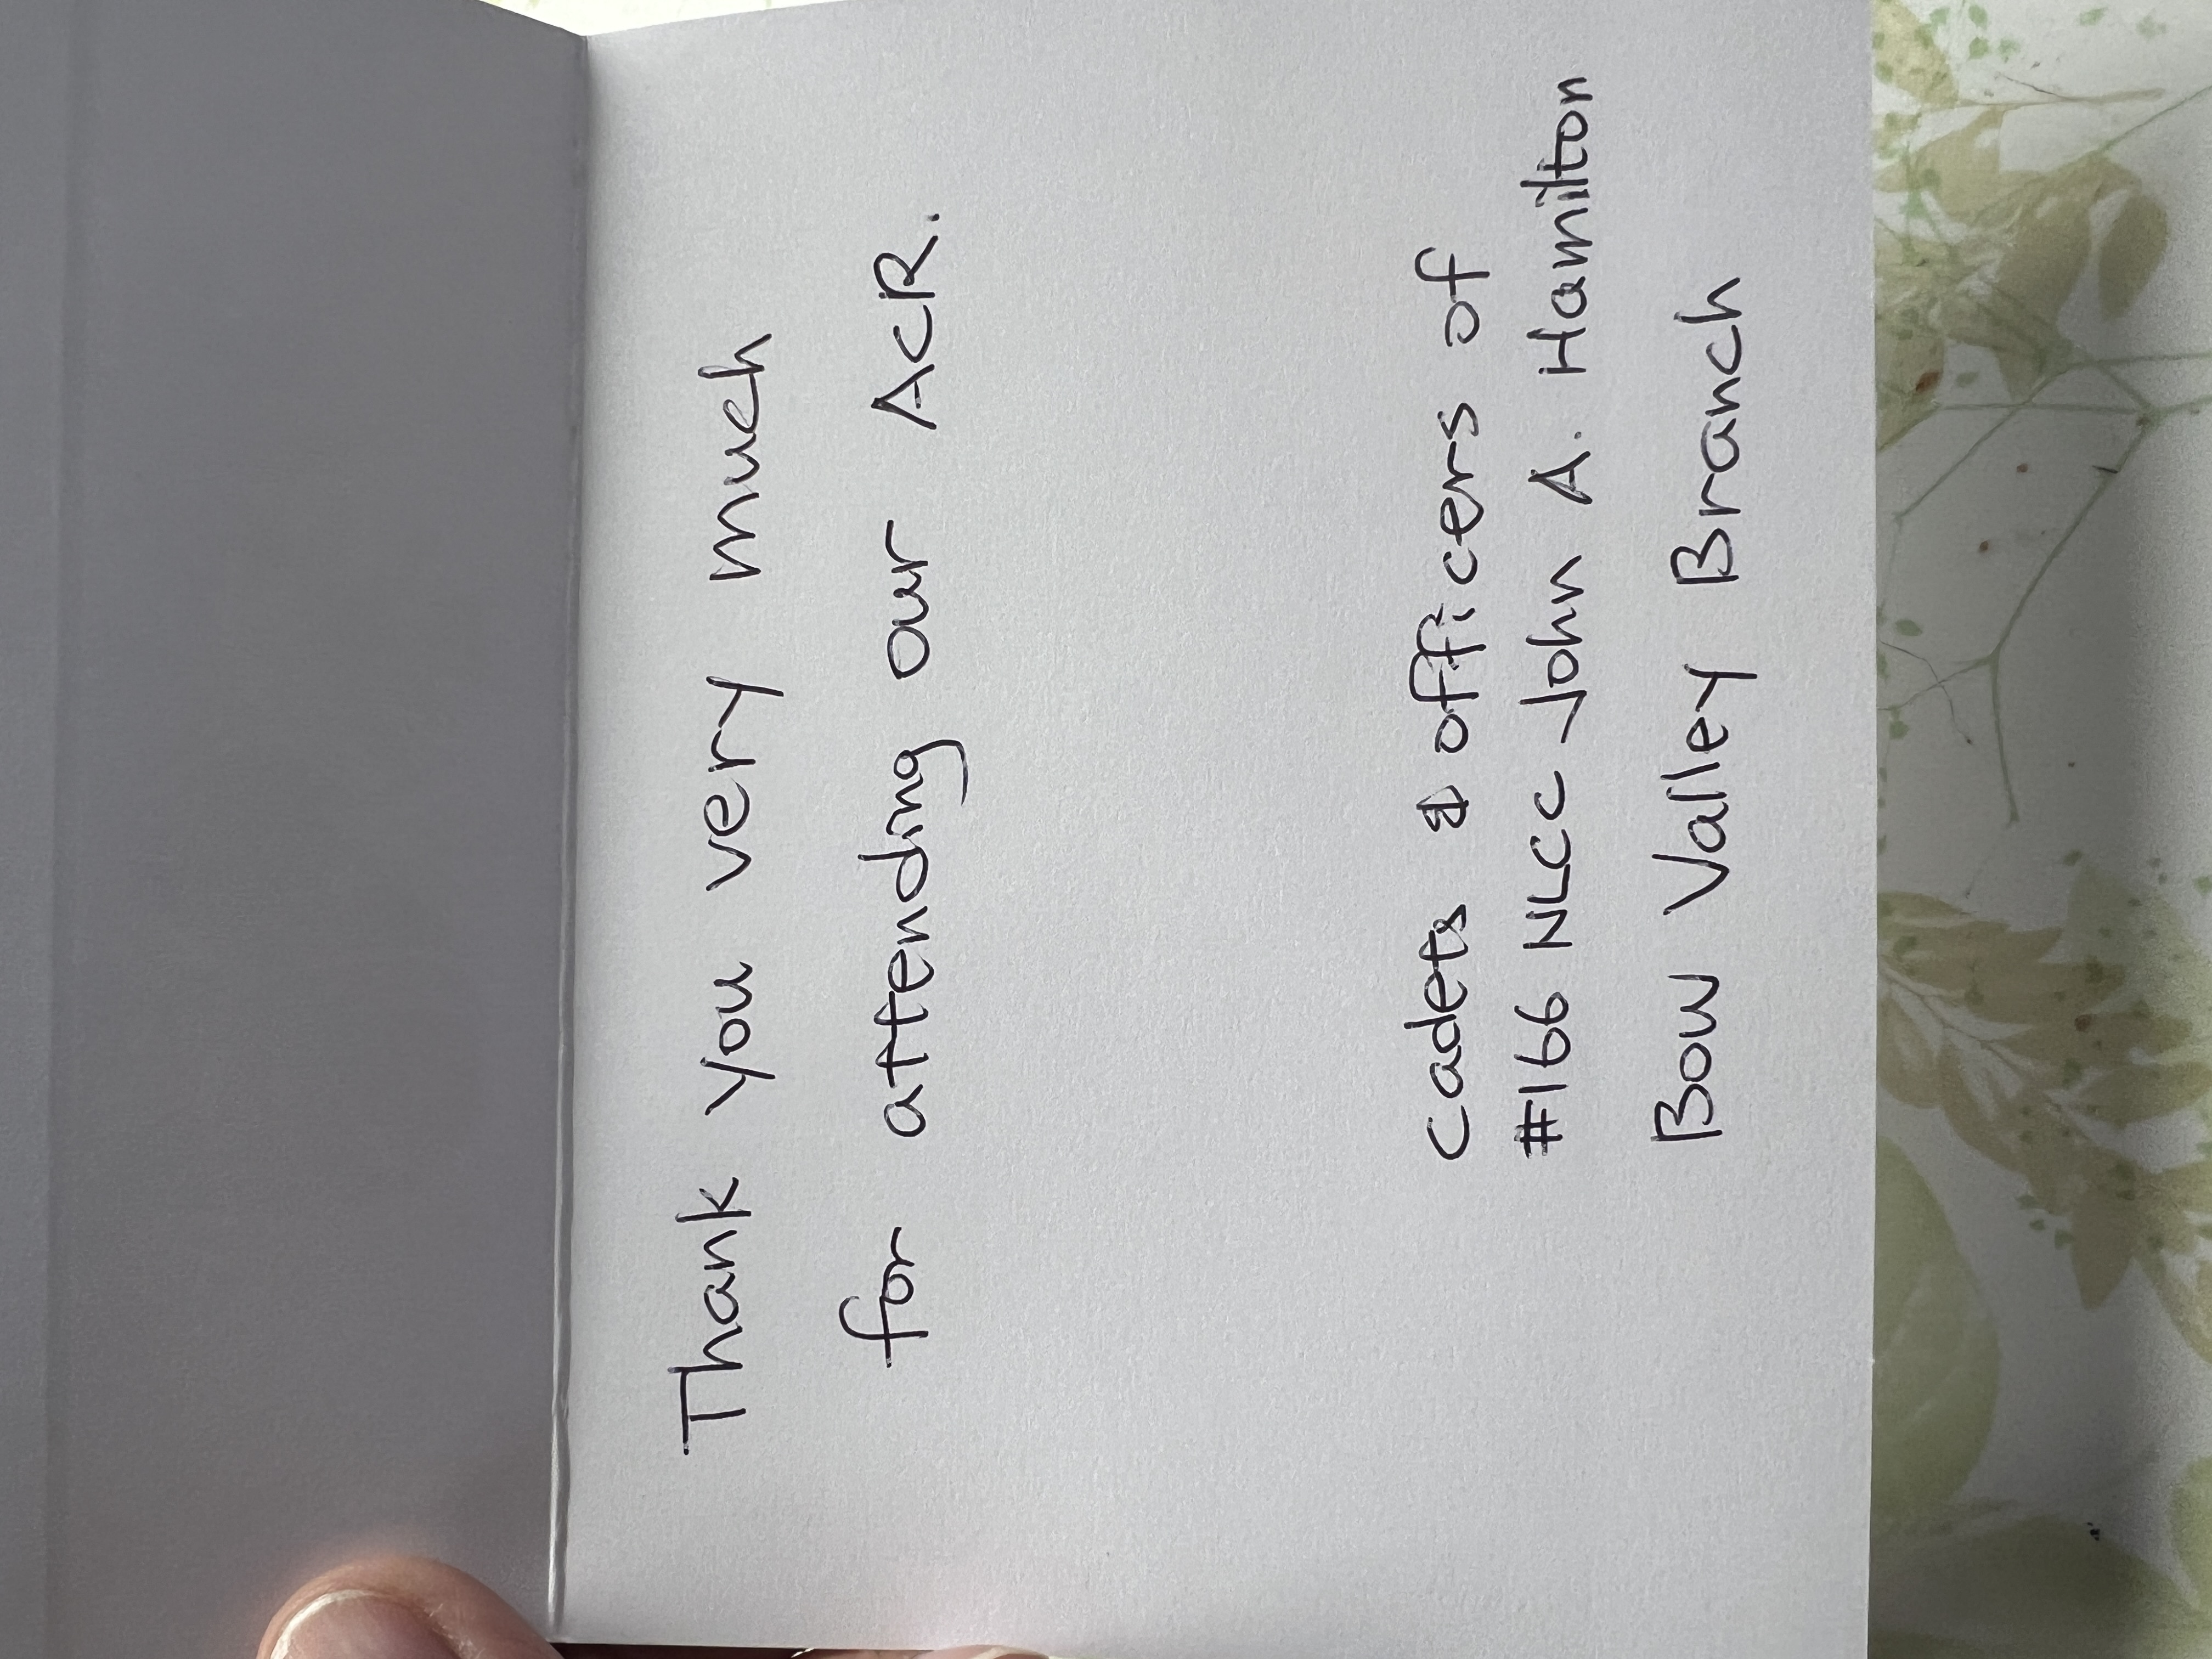 Thank you very much
for attending our ACR.
cadets & officers of
#166 NLCC John A. Hamilton
Bow Valley Branch